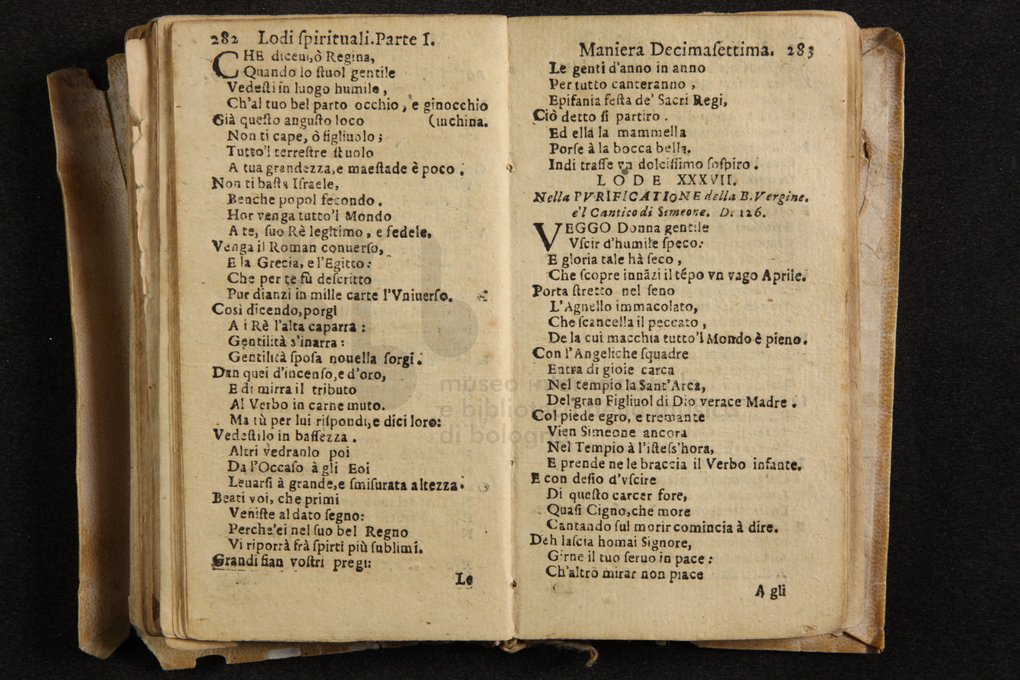 282 Lodi ſpirituali.Parte I.
CHE diceui,ò Regina,
Quando lo ſtuol gentile
Vedeſti in luogo humile,
Ch'al tuo bel parto occhio, e ginocchio
Già queſto anguſto loco (inchina.
Non ti cape, ò figliuolo;
Tutto'l terreſtre ſtuolo
A tua grandezza,e maeſtade è poco.
Non ti baſta Iſraele,
Benche popol fecondo.
Hor venga tutto'l Mondo
A te, ſuo Rè legitimo, e fedele.
Venga il Roman conuerſo,
E la Grecia, e l'Egitto:
Che per te fù deſcritto
Pur dianzi in mille carte l'Vniuerſo.
Così dicendo,porgi
A i Rè l'alta caparra:
Gentilità s'inarra:
Gentilità ſpoſa nouella ſorgi.
Dan quei d'incenſo,e d'oro,
E di mirra il tributo
Al Verbo in carne muto.
Ma tù per lui riſpondi,e dici loro:
Vedeſtilo in baſſezza.
Altri vedranlo poi
Da l'Occaſo à gli Eoi
Leuarſi à grande,e ſmiſurata altezza.
Beati voi, che primi
Veniſte al dato ſegno:
Perche'ei nel ſuo bel Regno
Vi riporrà frà ſpirti più ſublimi.
Grandi ſian voſtri pregi:
Le
Maniera Decimaſettima. 283
Le genti d'anno in anno
Per tutto canteranno,
Epifania feſta de' Sacri Regi,
Ciò detto ſi partiro.
Ed ella la mammella
Porſe à la bocca bella.
Indi traſſe vn dolciſſimo ſoſpiro.
LODE XXXVII.
Nella PVRIFICATIONE della B.Vergine.
e'l Cantico di Simeone. D. 126.
VEGGO Donna gentile
Vſcir d'humile ſpeco:
E gloria tale hà ſeco,
Che ſcopre innãzi il tẽpo vn vago Aprile.
Porta ſtretto nel ſeno
L'Agnello immacolato,
Che ſcancella il peccato,
De la cui macchia tutto'l Mondo è pieno.
Con l'Angeliche ſquadre
Entra di gioie carca
Nel tempio la Sant'Arca,
Del gran Figliuol di Dio verace Madre.
Col piede egro, e tremante
Vien Simeone ancora
Nel Tempio à l'iſteſs'hora,
E prende ne le braccia il Verbo infante.
E con deſio d'vſcire
Di queſto carcer fore,
Quaſi Cigno,che more
Cantando ſul morir comincia à dire.
Deh laſcia homai Signore,
Girne il tuo ſeruo in pace:
Ch'altro mirar non piace
A gli